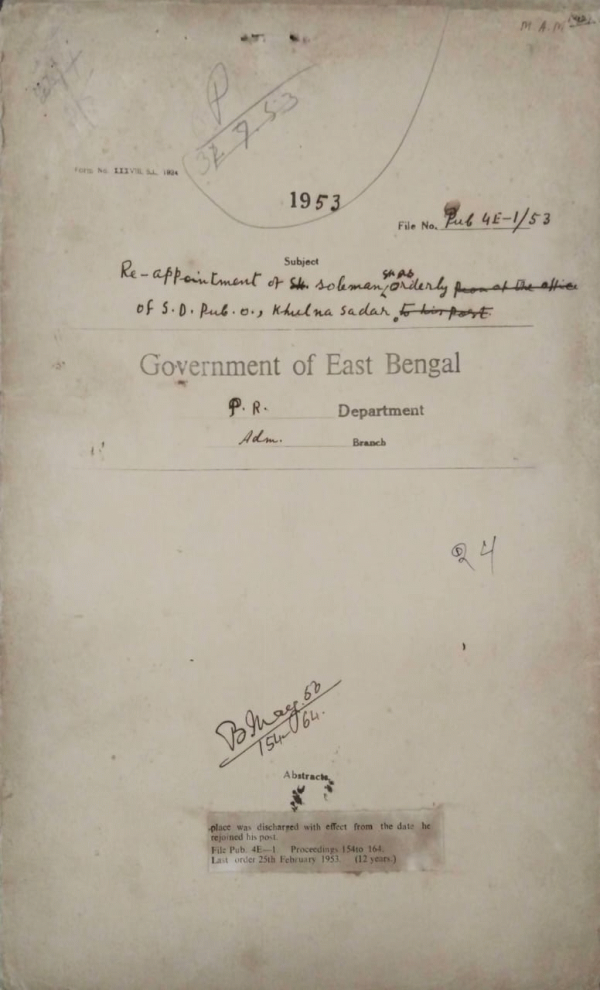 M. A. M
P
32.9.53
Form No. XXXVIII. S.L. 1934
1953
File No. Pub 4E-1/53
Subject
Re-appointment of Sk. Soleman, orderly peon at the office
of S.D. Pub. O., Khulna Sadar, to his post.
Government of East Bengal
P. R. Department
Adm. Branch
24
B May 53
154-64.
Abstracts
place was discharged with effect from the date he
rejoined his post.
File Pub. 4E—1. Proceedings 154to 164.
Last order 25th February 1953. (12 years.)